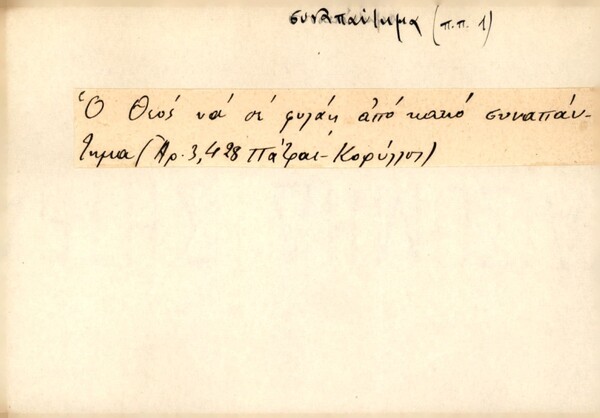 συναπάντημα (π.π. 1)
Ὁ Θεός νά σέ φυλάῃ ἀπό κακό συναπάν-
τημα (Ἀρ. 3,428 Πάτραι - Κορύλλος)